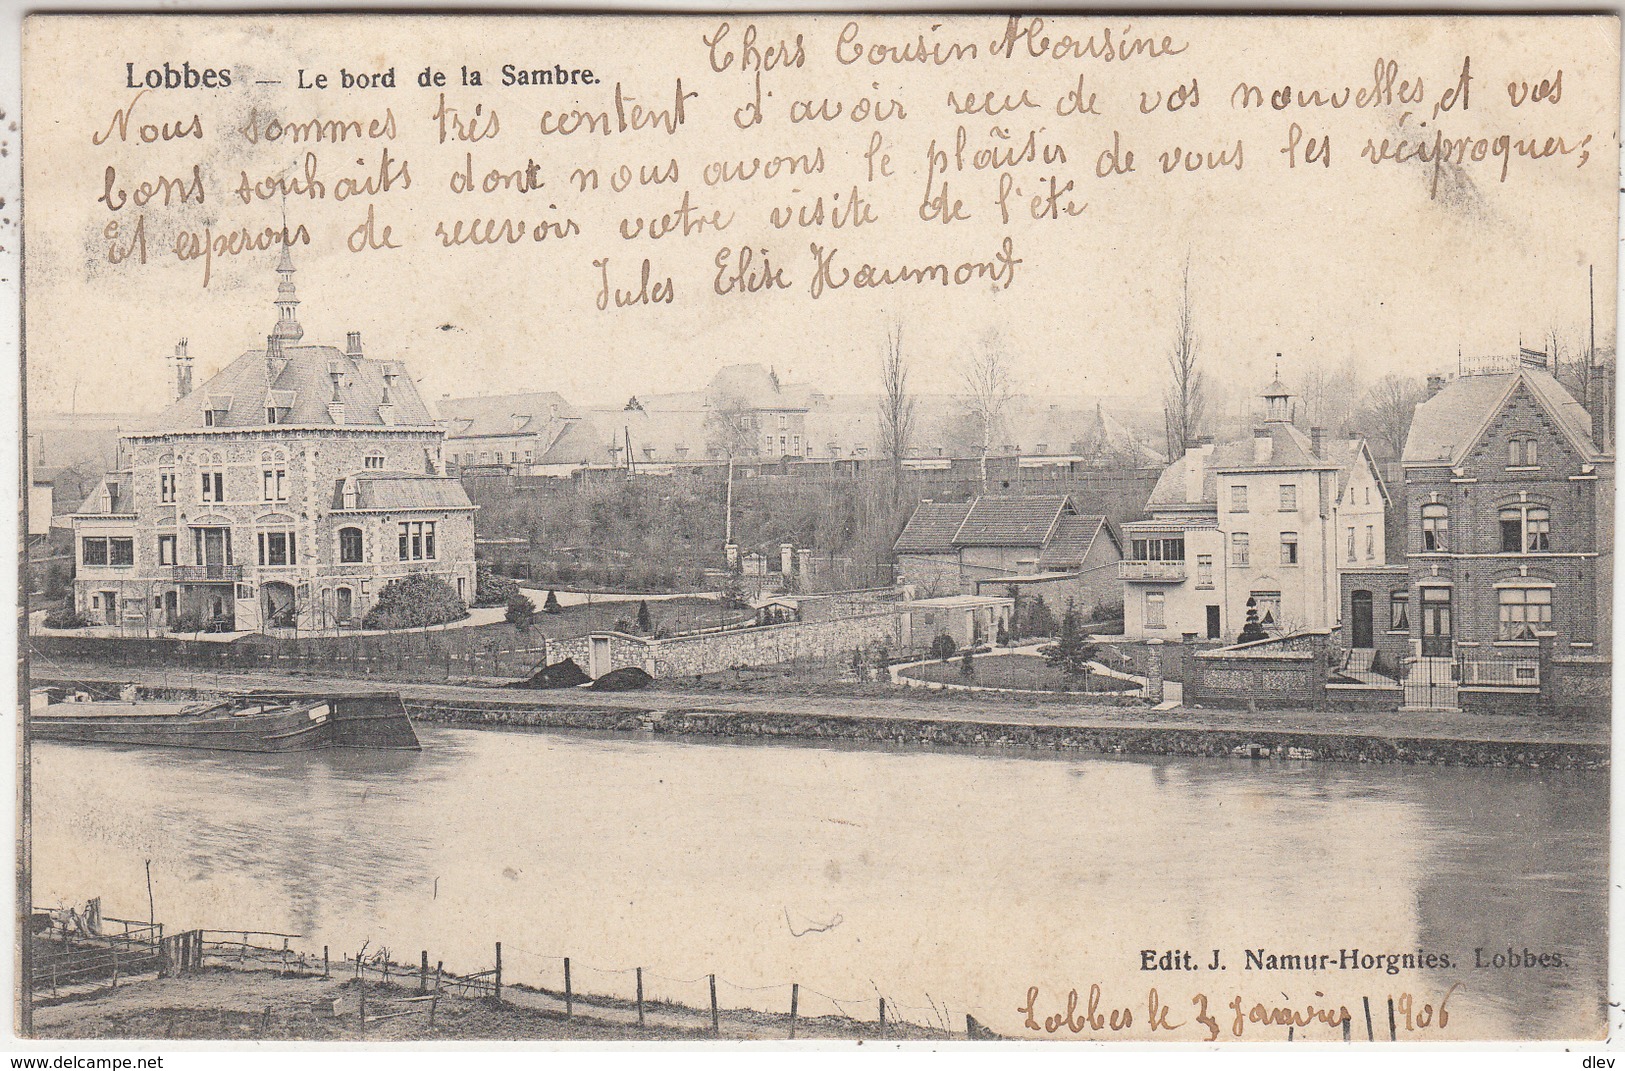 Chers Cousin & Cousine
Lobbes — Le bord de la Sambre.
Nous sommes très content d'avoir reçu de vos nouvelles, et vos
bons souhaits dont nous avons le plaisir de vous les réciproquer;
Et esperons de recevoir votre visite de l'été
Jules Elise Haumont
Edit. J. Namur-Horgnies. Lobbes.
Lobbes le Janvier 1906
delcampe.net
dlev